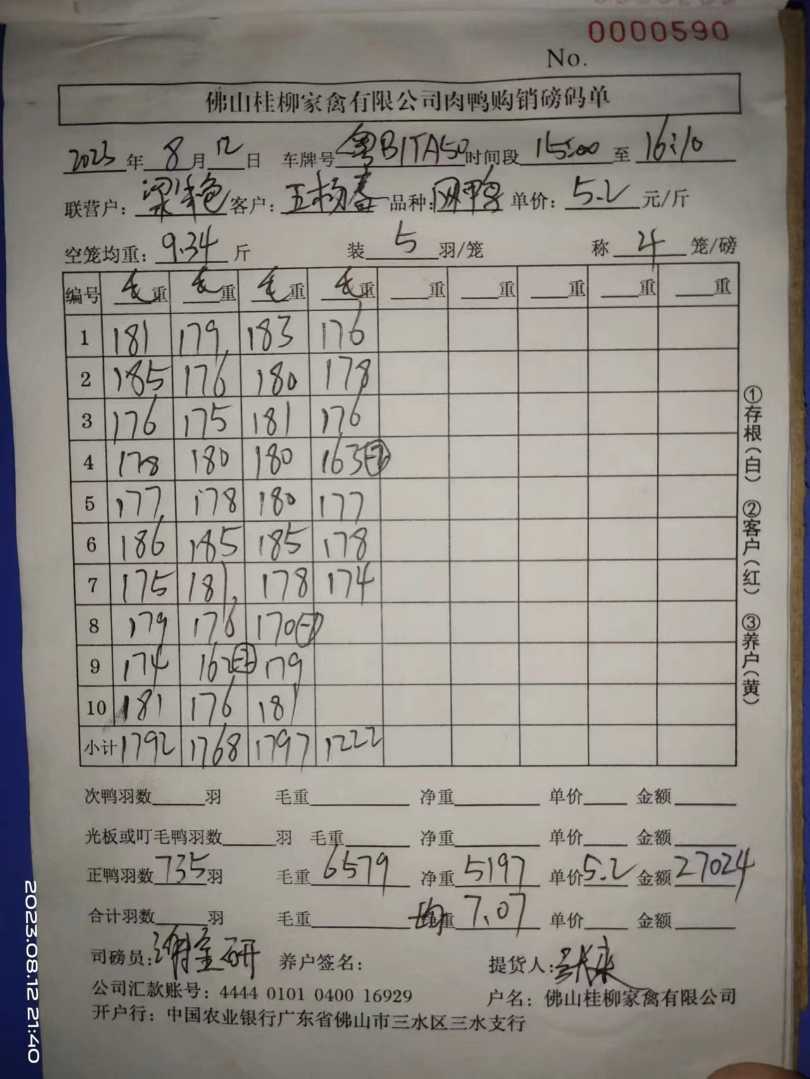 0000590
No.
佛山桂柳家禽有限公司肉鸭购销磅码单
2023年 8月12日 车牌号 粤B1TA50 时间段 15:00 至 16:10
联营户: 客户: 王杨春 品种: 单价: 5.2 元/斤
空笼均重: 9.34 斤 装 5 羽/笼 称 4 笼/磅
编号 毛重 毛重 毛重 毛重 重 重 重 重 重
1 181 179 183 176
2 185 176 180 178
3 176 175 181 176
4 178 180 180 163
5 177 178 180 177
6 186 185 185 178
7 175 181 178 174
8 179 176 170
9 174 162 179
10 181 176 181
小计 1792 1768 1797 1222
次鸭羽数 羽 毛重 净重 单价 金额
光板或叮毛鸭羽数 羽 毛重 净重 单价 金额
正鸭羽数 735 羽 毛重 6579 净重 5197 单价 5.2 金额 27024
合计羽数 羽 毛重 均重 7.07 单价 金额
司磅员: 养户签名: 提货人:
公司汇款账号: 4444 0101 0400 16929 户名: 佛山桂柳家禽有限公司
开户行: 中国农业银行广东省佛山市三水区三水支行
①存根(白) ②客户(红) ③养户(黄)
2023.08.12 21:40